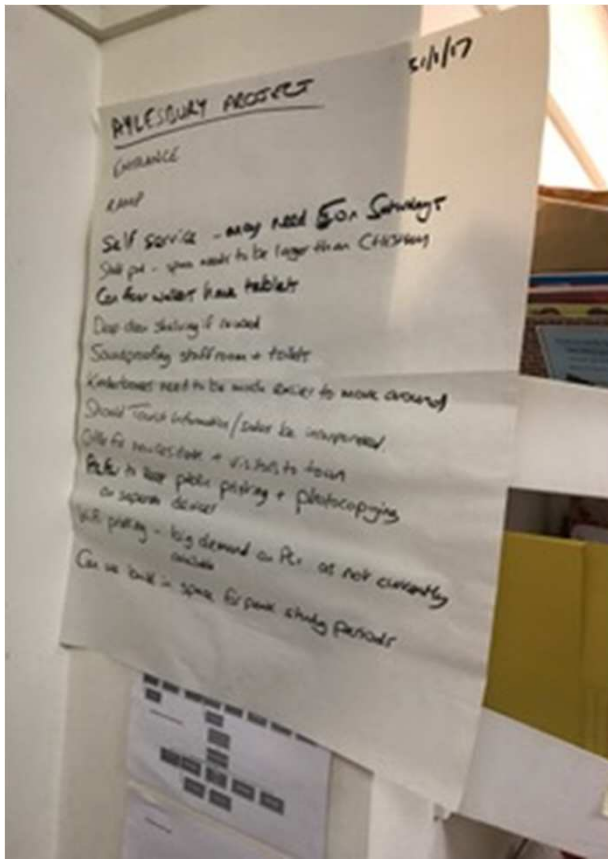 31/1/17
AYLESBURY PROJECT
ENTRANCE
RAMP
Self service - may need 5 on Saturdays
Staff pod - space needs to be larger than Chesham
Can floor walkers have tablets
Deep clean shelving if reused
Soundproofing staffroom + toilets
Kinderboxes need to be much easier to move around
Should Tourist Information / be incorporated.
for + visitors to town
Prefer to keep public printing + photocopying
on separate devices
Wifi printing - big demand on PCs as not currently
available
Can we build in space for peak study periods